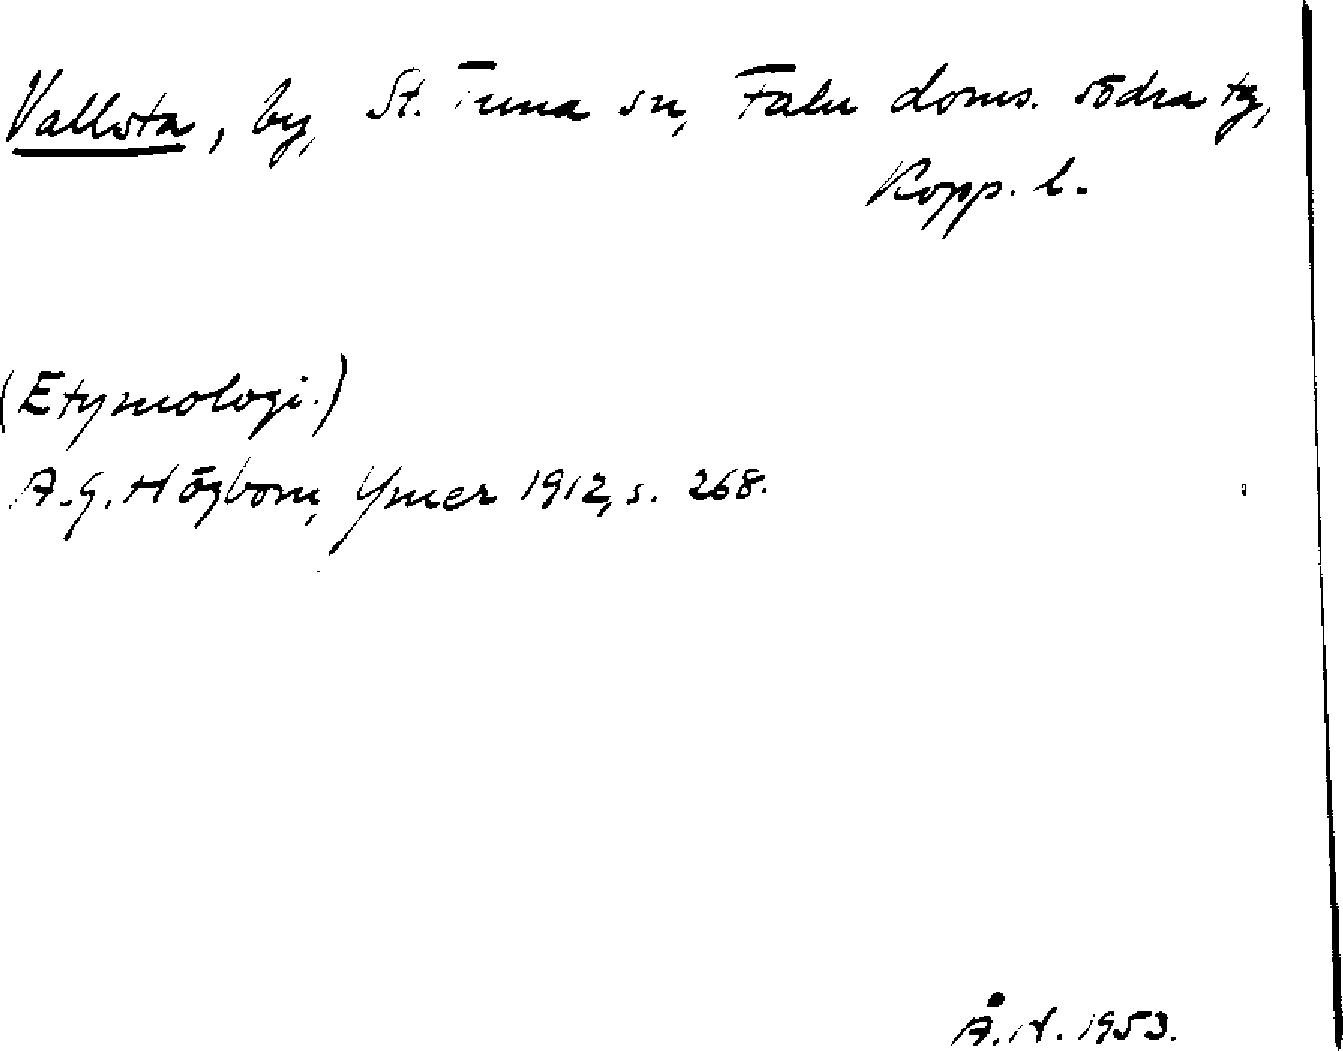 Vallsta, by, St. Tuna sn, Falu doms. södra tg,
Kopp. l.
(Etymologi.)
A.G. Högbom, Ymer 1912, s. 268.
Å. N. 1953.